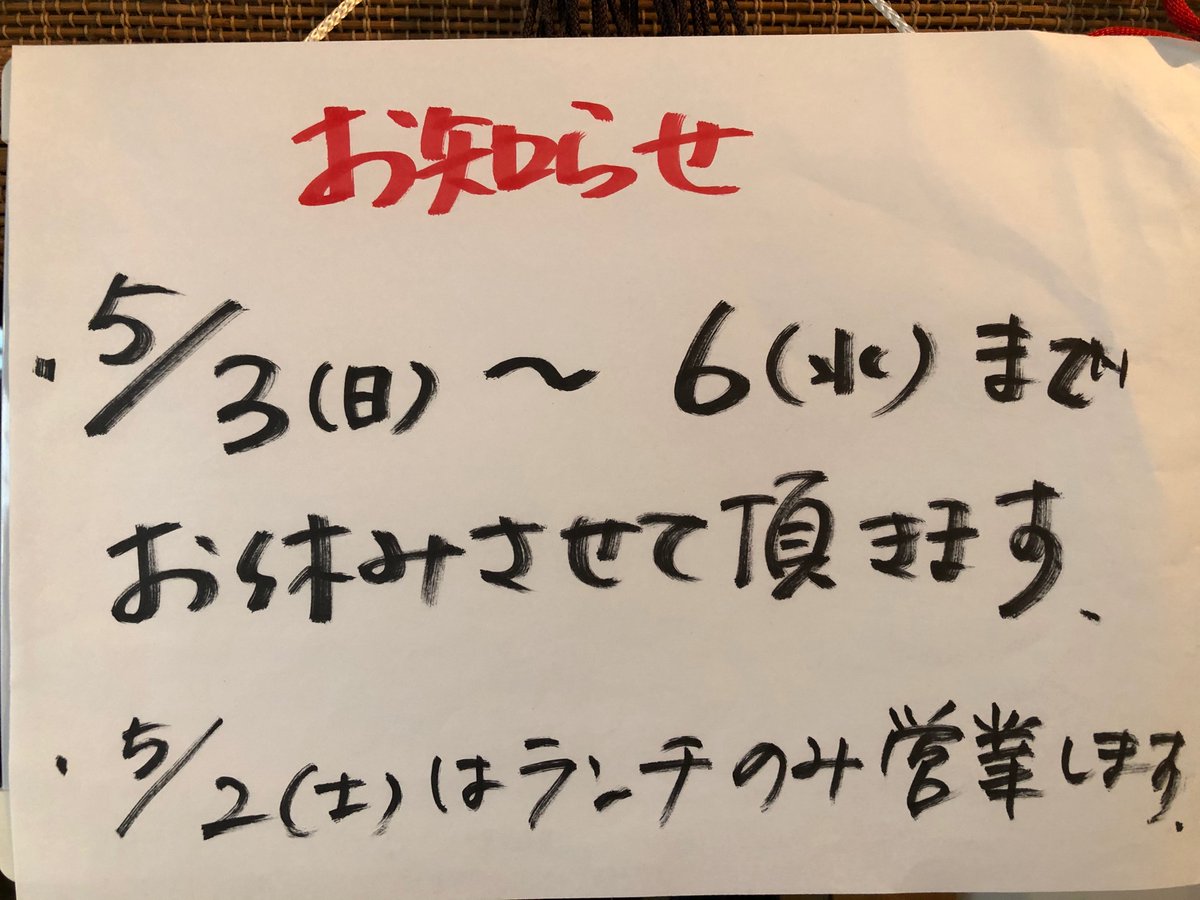 お知らせ
・5/3(日)～6(水)まで
お休みさせて頂きます、
・5/2(土)はランチのみ営業します.